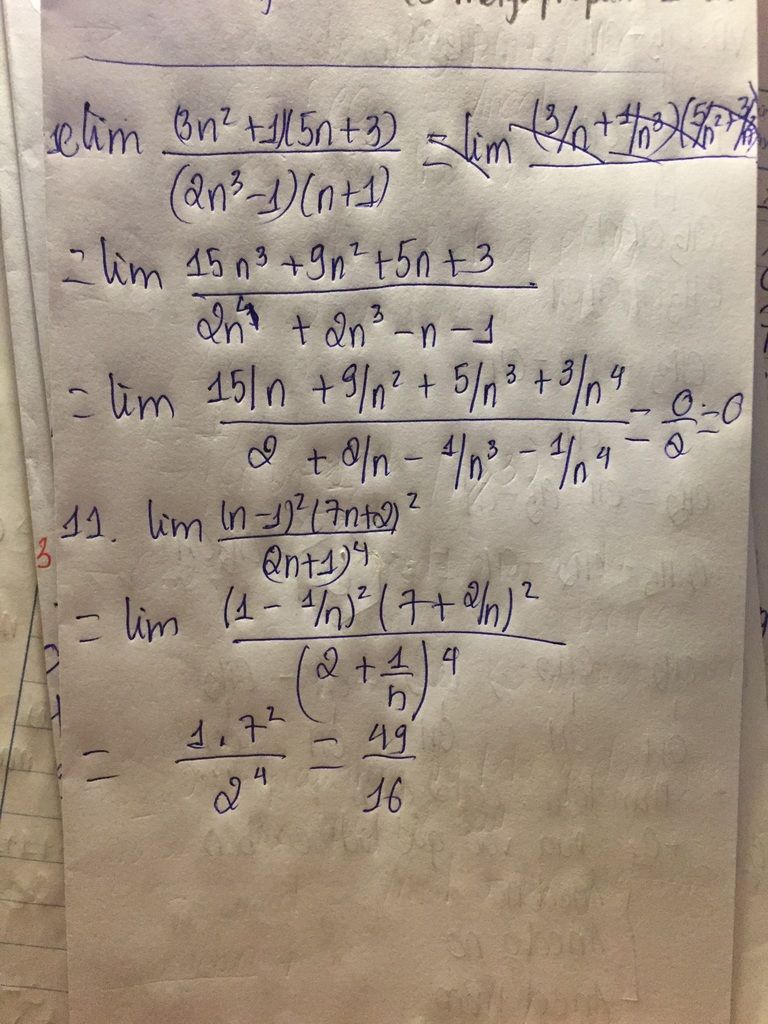 lim (3n² + 1)(5n + 3) / (2n³ - 1)(n + 1) = lim (3/n + 1/n³)(5/n² + 3/n³)
= lim 15n³ + 9n² + 5n + 3 / 2n⁴ + 2n³ - n - 1
= lim 15/n + 9/n² + 5/n³ + 3/n⁴ / 2 + 2/n - 1/n³ - 1/n⁴ = 0/2 = 0
11. lim (n - 1)² (7n + 2)² / (2n + 1)⁴
3
= lim (1 - 1/n)² (7 + 2/n)² / (2 + 1/n)⁴
= 1 . 7² / 2⁴ = 49 / 16